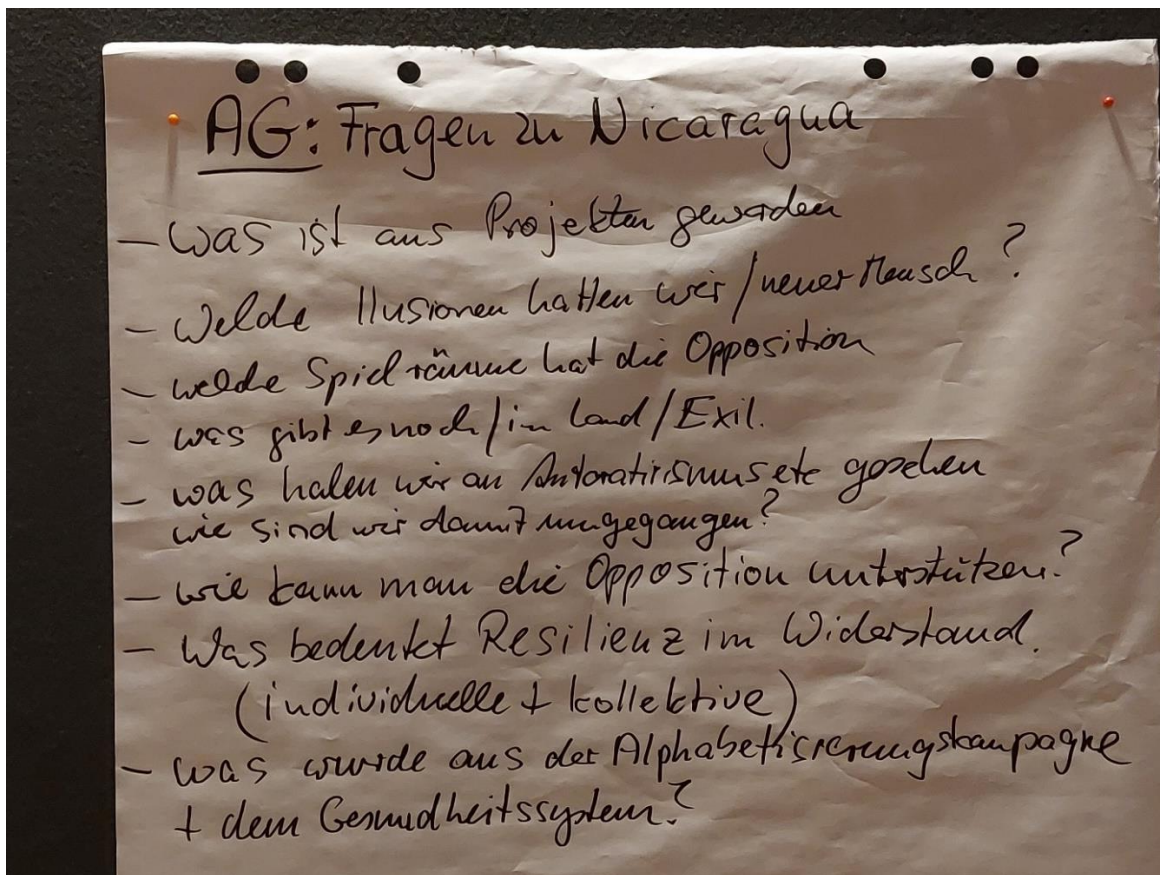 AG: Fragen zu Nicaragua
– Was ist aus Projekten geworden
– Welche Illusionen hatten wir / neuer Mensch?
– welche Spielräume hat die Opposition
– was gibt es noch / im Land / Exil.
– was haben wir an Autoratirismus etc gesehen
wie sind wir damit umgegangen?
– wie kann man die Opposition unterstützen?
– Was bedeutet Resilienz im Widerstand.
(individuelle + kollektive)
– was wurde aus der Alphabetisierungskampagne
+ dem Gesundheitssystem?